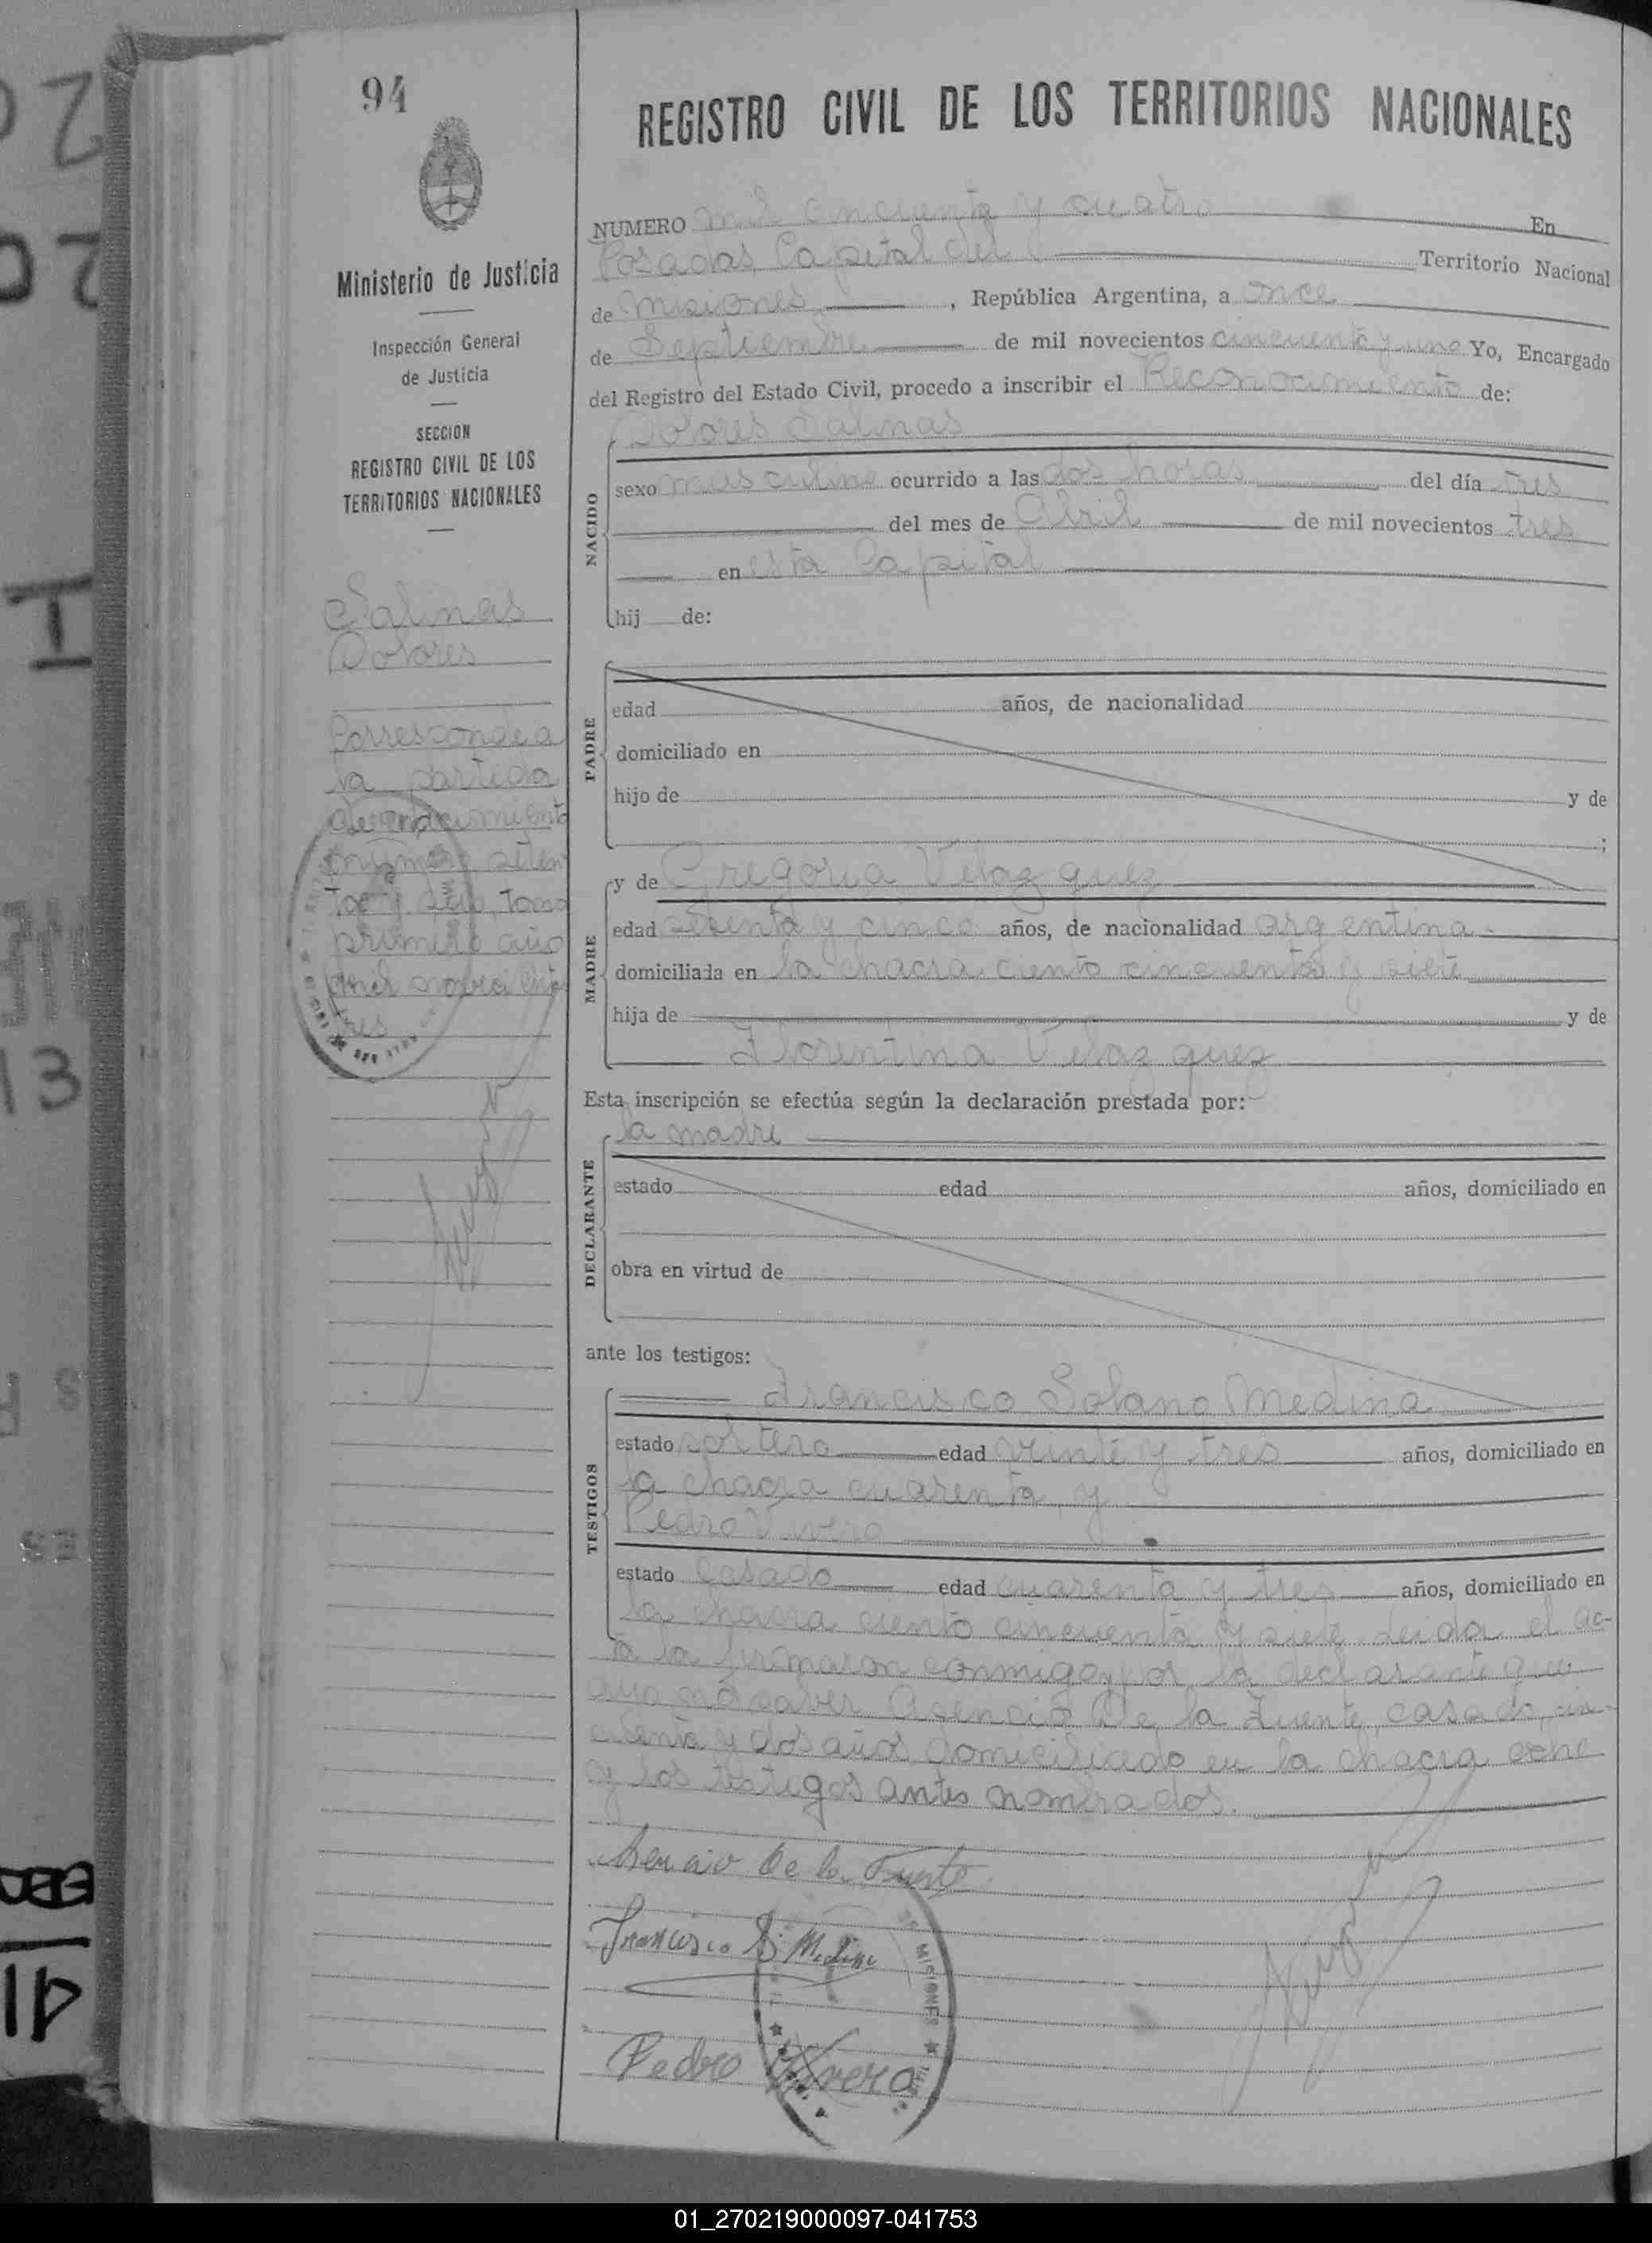 94
Ministerio de Justicia
Inspección General
de Justicia
SECCION
REGISTRO CIVIL DE LOS
TERRITORIOS NACIONALES
Salinas
Dolores
Corresponde a
la partida
de nacimiento
número seten
ta y seis, tomo
primero año
mil novecientos
tres
REGISTRO CIVIL DE LOS TERRITORIOS NACIONALES
NUMERO mil cincuenta y cuatro En
Posadas Capital del Territorio Nacional
de Misiones, República Argentina, a once
de Septiembre de mil novecientos cincuenta y uno Yo, Encargado
del Registro del Estado Civil, procedo a inscribir el Reconocimiento de:
Dolores Salinas
NACIDO
sexo masculino ocurrido a las dos horas del día tres
del mes de Abril de mil novecientos tres
en esta Capital
hij de:
PADRE
edad años, de nacionalidad
domiciliado en
hijo de y de
;
MADRE
y de Gregoria Velazquez
edad sesenta y cinco años, de nacionalidad argentina
domiciliada en la chacra ciento cincuenta y siete
hija de y de
Florentina Velazquez
Esta inscripción se efectúa según la declaración prestada por:
la madre
DECLARANTE
estado edad años, domiciliado en
obra en virtud de
ante los testigos:
Francisco Solano Medina
TESTIGOS
estado soltero edad veinte y tres años, domiciliado en
la chacra cuarenta, y
Pedro Vivero
estado casado edad cuarenta y tres años, domiciliado en
la chacra ciento cincuenta y siete. Leida el ac-
ta la firmaron conmigo, por la declarante que
no saber Asencio De la Fuente, casado, cin-
cuenta y dos años, domiciliado en la chacra once
y los testigos antes nombrados.
Asencio De la Fuente
Francisco S. Medina
Pedro Vivero
MISIONES
01_270219000097-041753